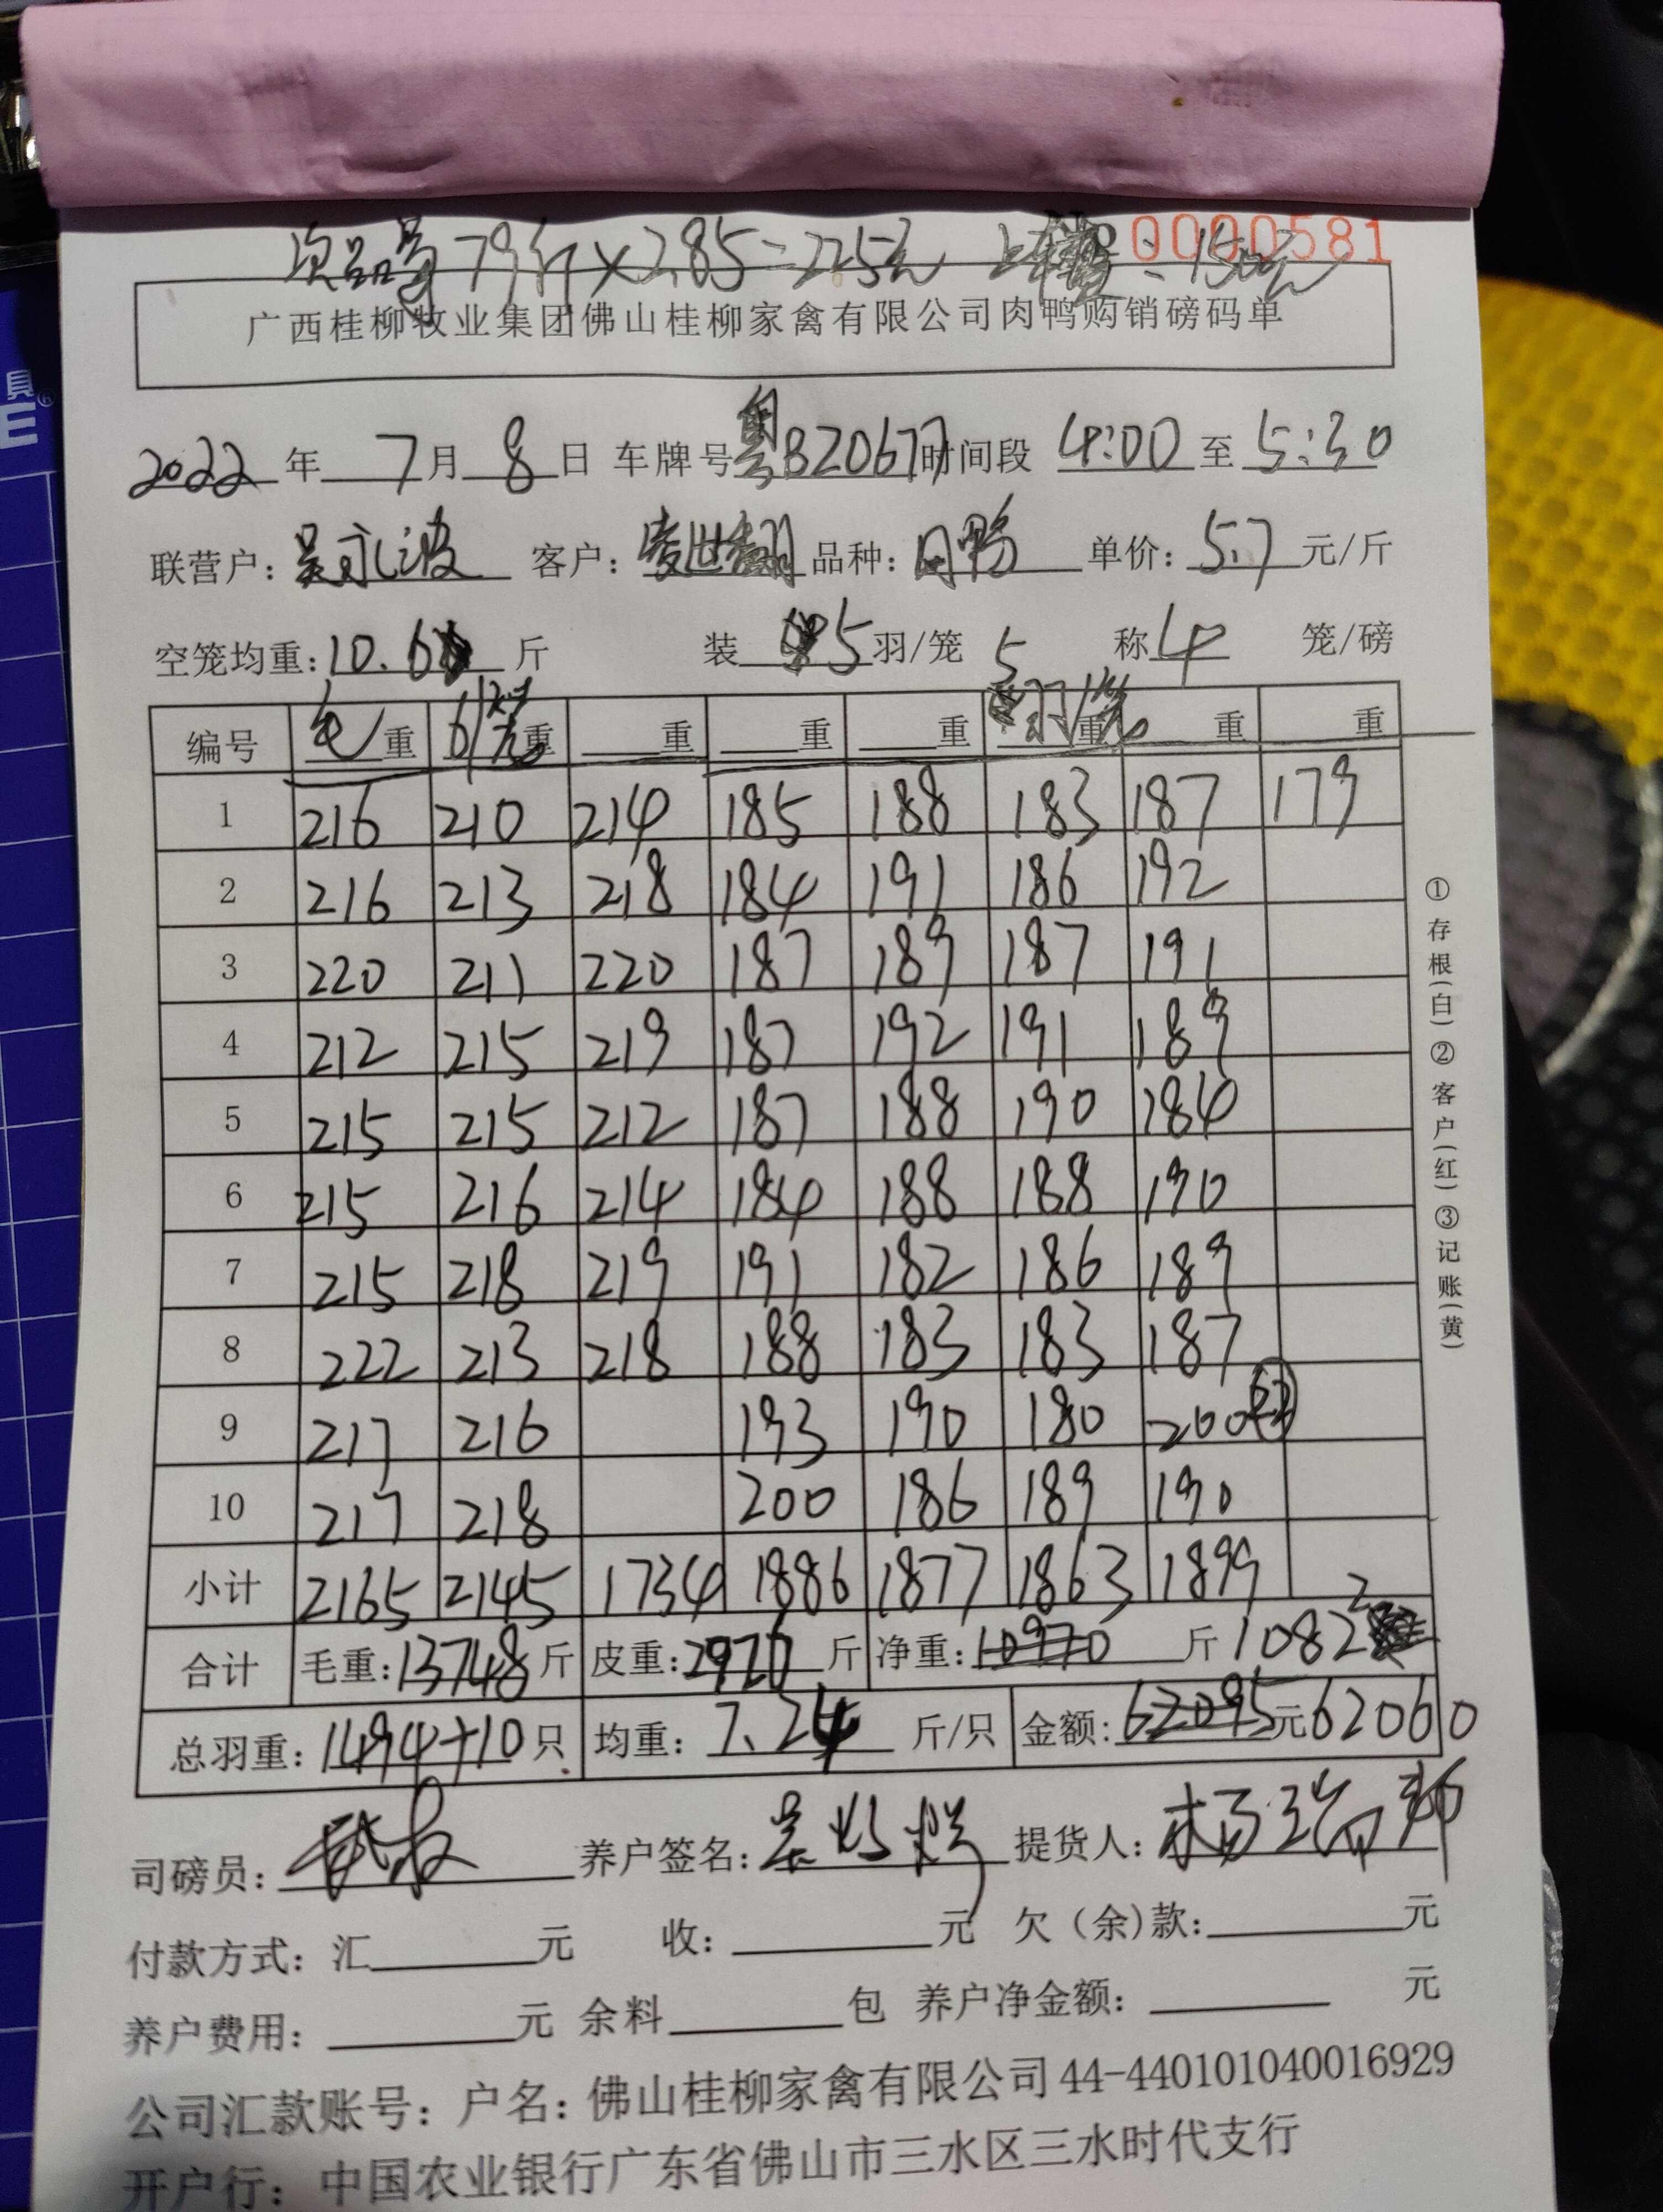 0000581
次品鸭 79斤×2.85=225元 上车费:150元
广西桂柳牧业集团佛山桂柳家禽有限公司肉鸭购销磅码单
2022 年 7 月 8 日 车牌号 粤BZ0677 时间段 4:00 至 5:30
联营户: 吴永波 客户: 品种: 肉鸭 单价: 5.7 元/斤
空笼均重: 10.6 斤 装 5 羽/笼 称 4 笼/磅
5羽/笼
编号 毛重 6/笼 重 重 重 重 重 重 重
1 216 210 214 185 188 183 187 179
2 216 213 218 184 191 186 192
3 220 211 220 187 189 187 191
4 212 215 219 187 192 191 189
5 215 215 212 187 188 190 184
6 215 216 214 184 188 188 190
7 215 218 219 191 182 186 189
8 222 213 218 188 183 183 187
9 217 216 193 190 180 200
10 217 218 200 186 189 190
小计 2165 2145 1734 1886 1877 1863 1899
合计 毛重: 13748 斤 皮重: 2926 斤 净重: 10970 斤 10822
总羽重: 1494+10 只 均重: 7.24 斤/只 金额: 62095 元 62060
司磅员: 养户签名: 提货人: 杨瑞邦
付款方式: 汇 元 收: 元 欠(余)款: 元
养户费用: 元 余料 包 养户净金额: 元
公司汇款账号: 户名: 佛山桂柳家禽有限公司 44-440101040016929
开户行: 中国农业银行广东省佛山市三水区三水时代支行
①存根(白)②客户(红)③记账(黄)